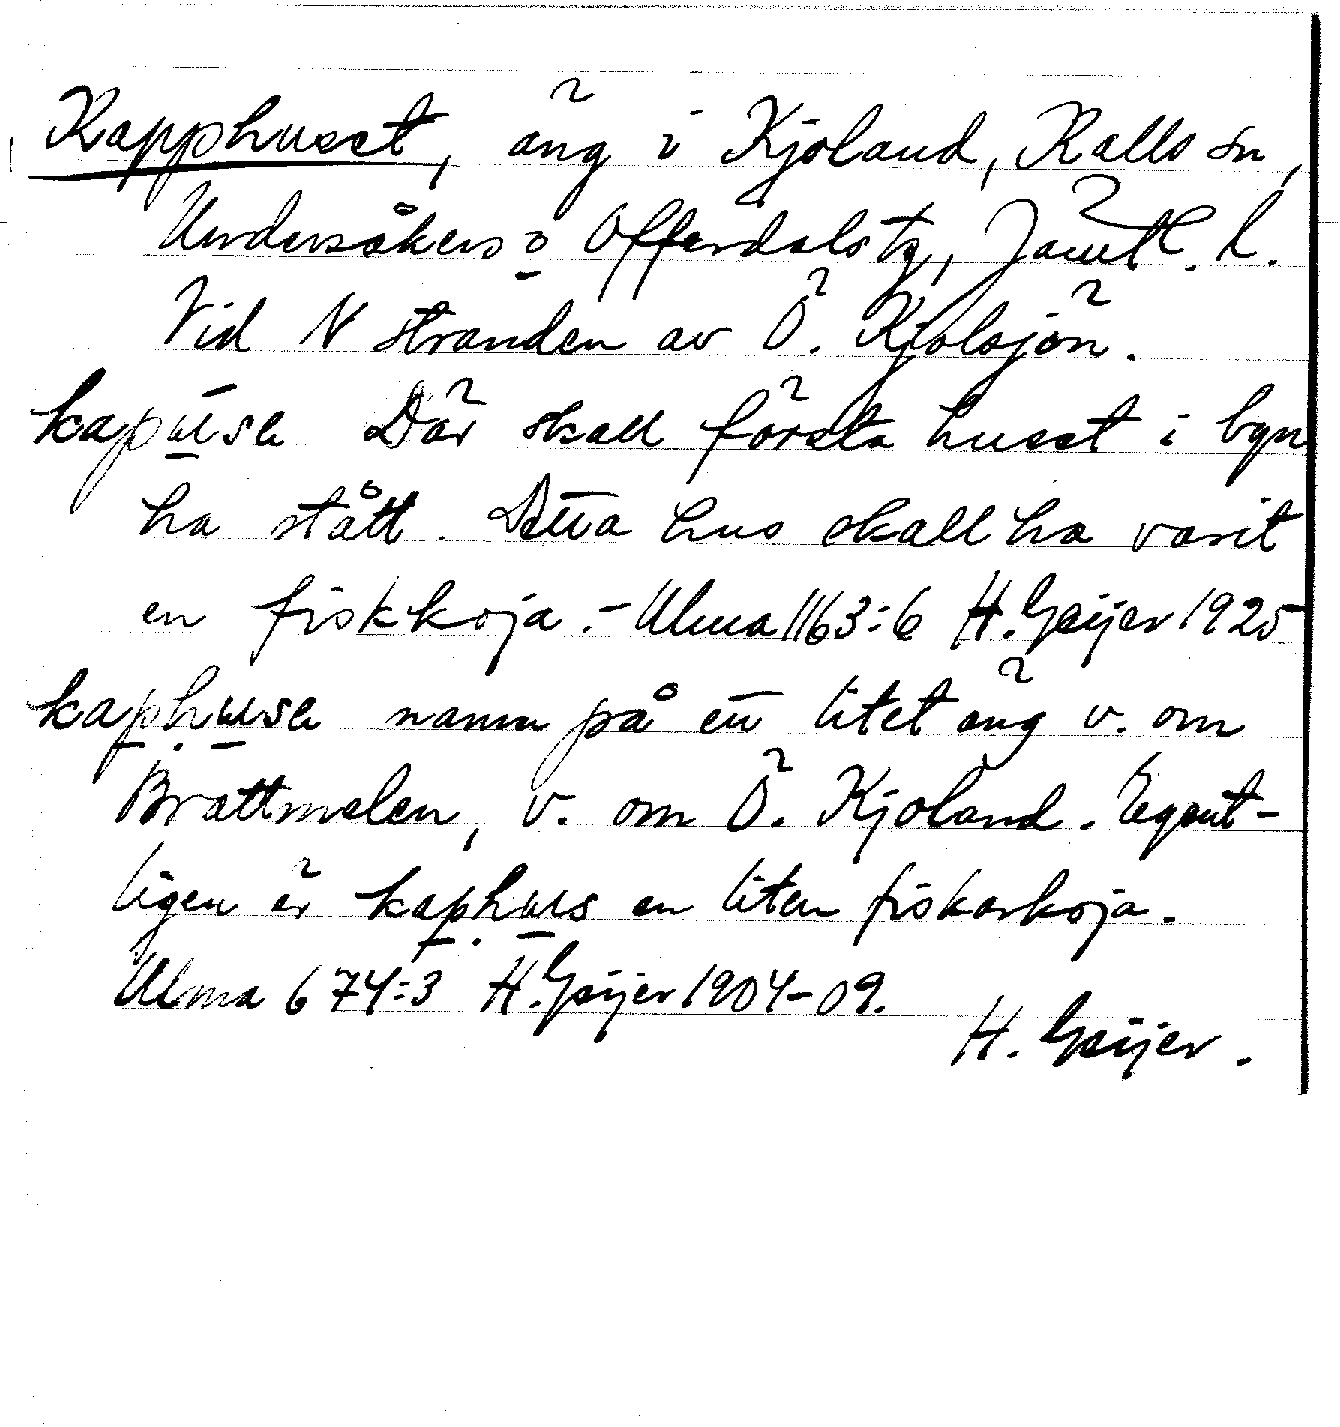 Kapphuset, äng i Kjoland, Kalls sn,
Undersåkers o Offerdals tg, Jämtl. l.
Vid N stranden av Ö. Kjolsjön.
kapuse Där skall första huset i byn
ha stått. Detta hus skall ha varit
en fiskkoja. - Ulma 1163:6 H. Geijer 1925
kaphuse namn på en litet äng v. om
Brattmelen, v. om Ö. Kjoland. Egent-
ligen är kaphus en liten fiskarkoja.
Ulma 674:3 H. Geijer 1904-09.
H. Geijer.